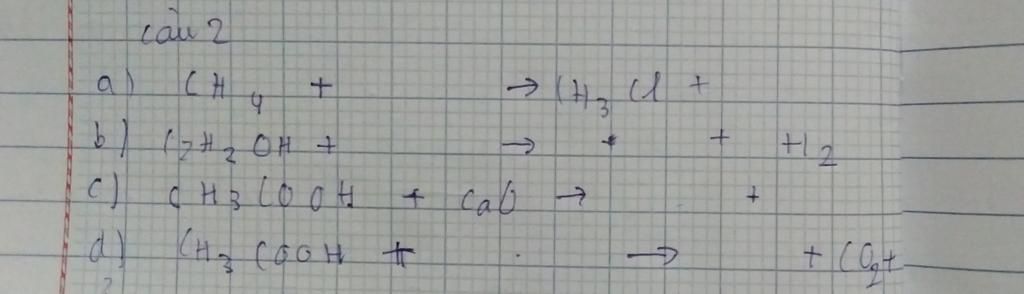 câu 2
a) CH4 + → CH3Cl +
b) C2H2OH + → + H2
c) CH3COOH + CaO → +
d) CH3COOH + → + CO2 +